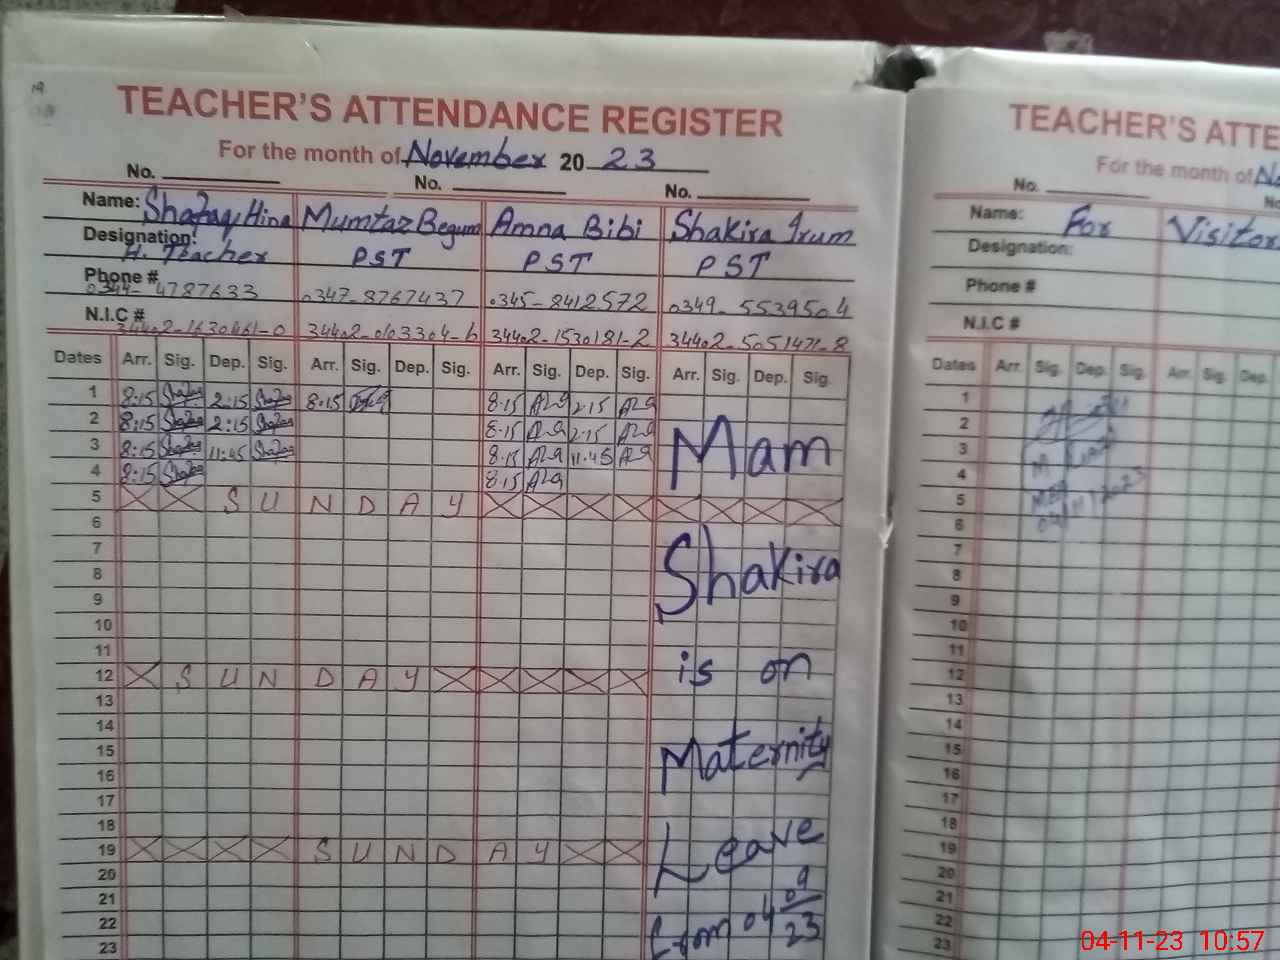 TEACHER'S ATTENDANCE REGISTER
For the month of November 20 23
No. No. No.
Name: Shafaq Hina Mumtaz Begum Amna Bibi Shakira Irum
Designation: H. Teacher PST PST PST
Phone # 0344-4787633 0347-8767437 0345-8412572 0349-5539504
N.I.C # 34402-1630461-0 34402-0103304-6 34402-1530181-2 34402-5051471-8
Dates Arr. Sig. Dep. Sig. Arr. Sig. Dep. Sig. Arr. Sig. Dep. Sig. Arr. Sig. Dep. Sig.
1 8:15 2:15 8:15 8.15 2.15
2 8:15 2:15 8.15 2.15
3 8:15 11:45 8.15 11.45
4 8:15 8.15
5 SUNDAY
6
7
8
9
10
11
12 SUNDAY
13
14
15
16
17
18
19 SUNDAY
20
21
22
23
Mam
Shakira
is on
Maternity
Leave
from 04/09/23
TEACHER'S ATTE
For the month of No
No. No
Name: For Visitor
Designation:
Phone #
N.I.C #
Dates Arr. Sig. Dep. Sig. Arr. Sig. Dep.
1
2
3
4
5
6
7
8
9
10
11
12
13
14
15
16
17
18
19
20
21
22
23
04-11-23 10:57